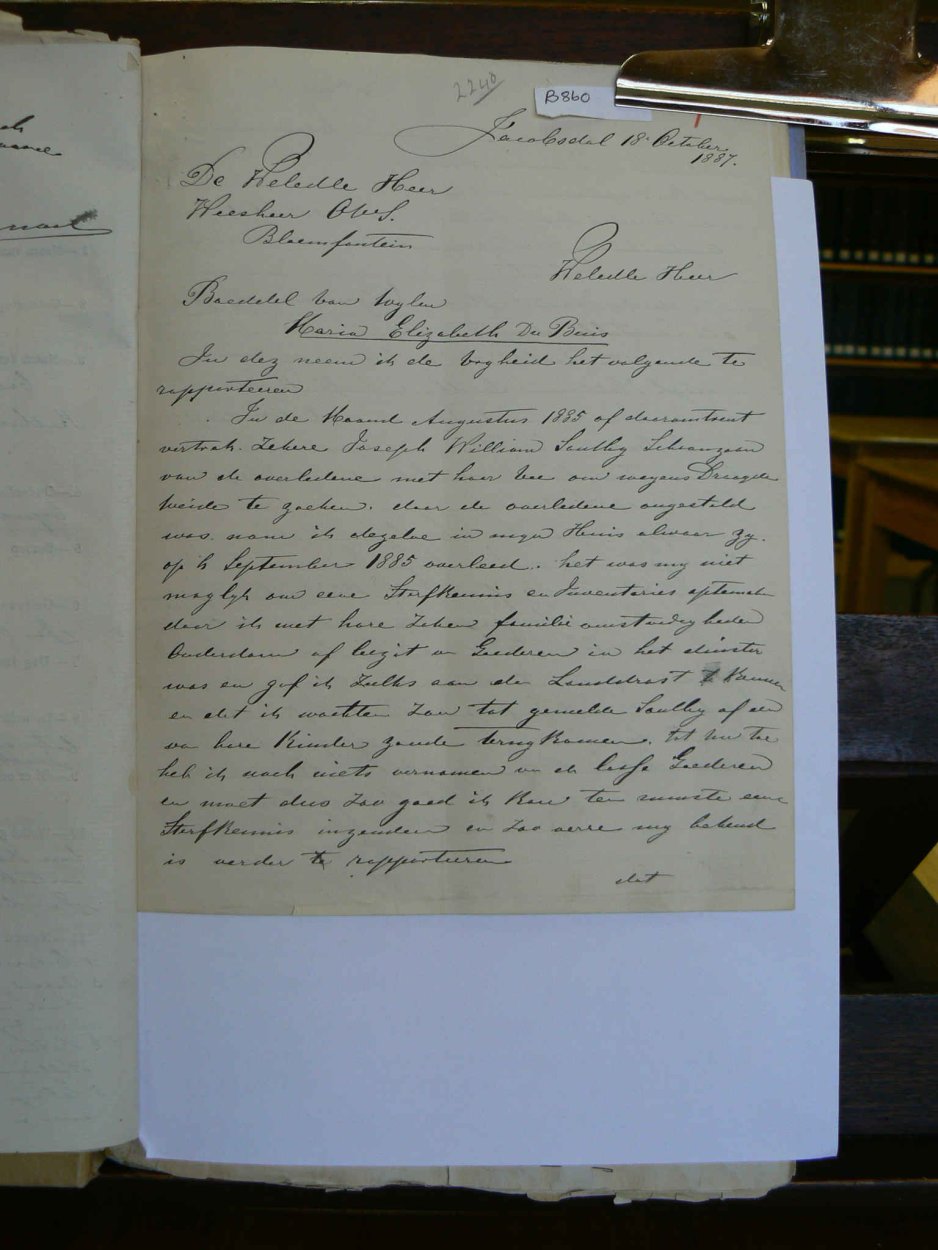 2240
B860
Jacobsdal 18 October
1887.
De Weledle Heer
Weesheer OVS.
Bloemfontein
Weledle Heer
Boedel van wylen
Maria Elizabeth Du Buis
In dez neem ik de vryheid het volgende te
rapporteeren
In de Maand Augustus 1885 of daaromtrent
vertrok zekere Joseph William Southy Schoonzoon
van de overledene met haar vee om wegens Droogte
weide te zoeken. daar de overledene ongesteld
was nam ik dezelve in myn Huis alwaar zy
op September 1885 overleed. het was my niet
moglyk om eene Sterfkennis en Inventaris optemaken
daar ik met hare Zaken familie omstandigheden
Ouderdom of bezit van Goederen in het minste
was en gaf ik zulks aan den Landdrost te kennen
en dat ik wachten zou tot gemelde Southy of een
van hare Kinder zoude terugkomen. tot nu toe
heb ik noch niets vernomen van de losse Goederen
en moet dus zoo goed ik kan ten minste eene
Sterfkennis inzenden en zoo verre my bekend
is verder te rapporteeren
dat